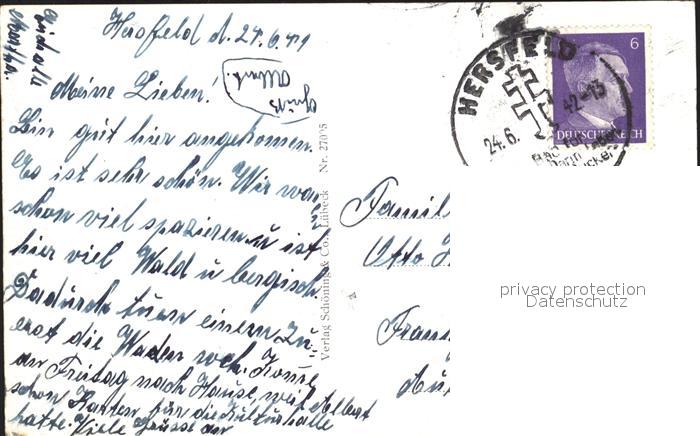 Hersfeld d. 24.6.42
Meine Lieben!
Bin gut hier angekomen.
Es ist sehr schön. Wir war
schon viel spazieren u ist
hier viel Wald u bergisch.
Dadurch tuen einem zu-
erst die Waden weh. Kome
am Freitag nach Hause, weil Albert
schon Karten für die Kulturhalle
hatte. Viele Grüsse
Gruß
Albert.
Verlag Schöning & Co., Lübeck Nr. 27075
HERSFELD
24.6. 42-13
6
DEUTSCHES REICH
Famil
Otto
Fran
privacy protection
Datenschutz